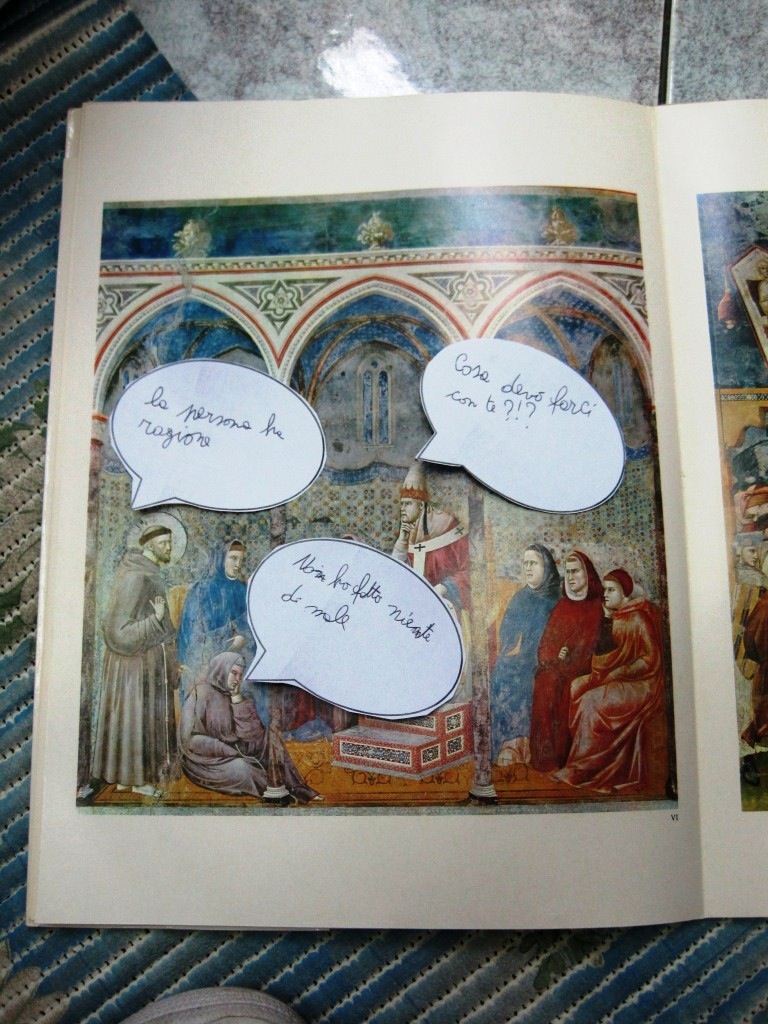 la persona ha
ragione
Cosa devo farci
con te?!?
Non ho fatto niente
di male
VI